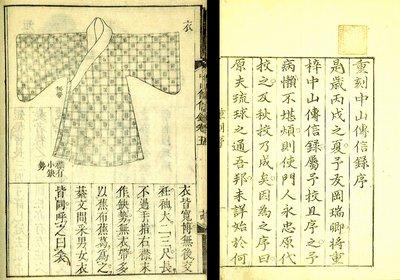 重刻中山傳信錄序
是歳丙戌之夏予友岡瑞卿將重
梓中山傳信錄屬予校且序之予
病懶不堪煩則使門人永忠原代
校之及秋挍乃成矣因為之序曰
原夫琉球之通吾邦未詳始於何
中山傳信錄卷五
衣
襟有
小缺
勢
衣皆寬博無後交
袵袖大二三尺長
不過手指右襟末
作缺勢無衣帶多
以蕉布為之
文間采男女衣
皆同呼之曰